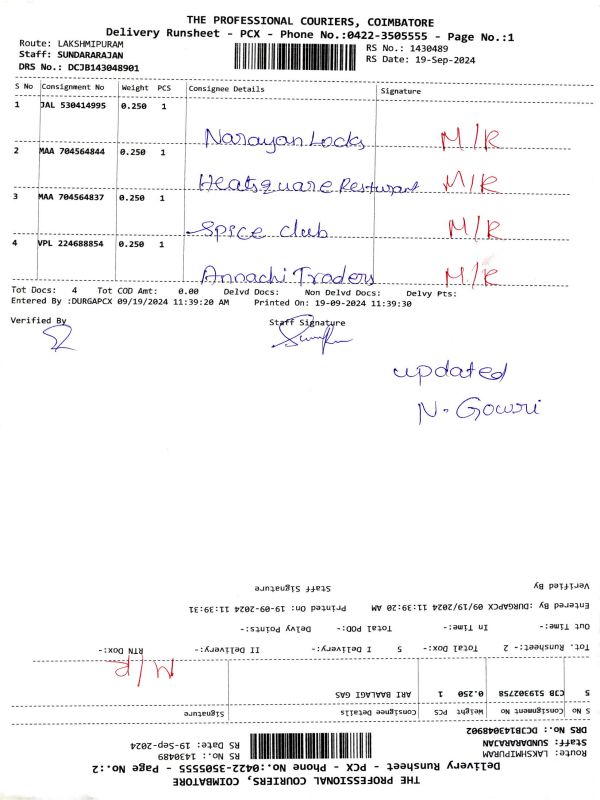 THE PROFESSIONAL COURIERS, COIMBATORE
Delivery Runsheet - PCX - Phone No.:0422-3505555 - Page No.:1
Route: LAKSHMIPURAM
RS No.: 1430489
Staff: SUNDARARAJAN
RS Date: 19-Sep-2024
DRS No.: DCJB143048901
S No Consignment No Weight PCS Consignee Details Signature
1 JAL 530414995 0.250 1
Narayan Locks M/R
2 MAA 704564844 0.250 1
Heatsquare Resturant M/R
3 MAA 704564837 0.250 1
Spice club M/R
4 VPL 224688854 0.250 1
Annachi Traders M/R
Tot Docs: 4 Tot COD Amt: 0.00 Delvd Docs: Non Delvd Docs: Delvy Pts:
Entered By :DURGAPCX 09/19/2024 11:39:20 AM Printed On: 19-09-2024 11:39:30
Verified By Staff Signature
updated
N. Gowri
THE PROFESSIONAL COURIERS, COIMBATORE
Delivery Runsheet - PCX - Phone No.:0422-3505555 - Page No.:2
Route: LAKSHMIPURAM
RS No.: 1430489
Staff: SUNDARARAJAN
RS Date: 19-Sep-2024
DRS No.: DCJB143048902
S No Consignment No Weight PCS Consignee Details Signature
5 CJB 519302758 0.250 1 ARI BAALAGI GAS
M/R
Tot. Runsheet:- 2 Total Dox:- 5 I Delivery:- II Delivery:- RTN Dox:-
Out Time:- In Time:- Total POD:- Delvy Points:-
Entered By :DURGAPCX 09/19/2024 11:39:20 AM Printed On: 19-09-2024 11:39:31
Verified By Staff Signature